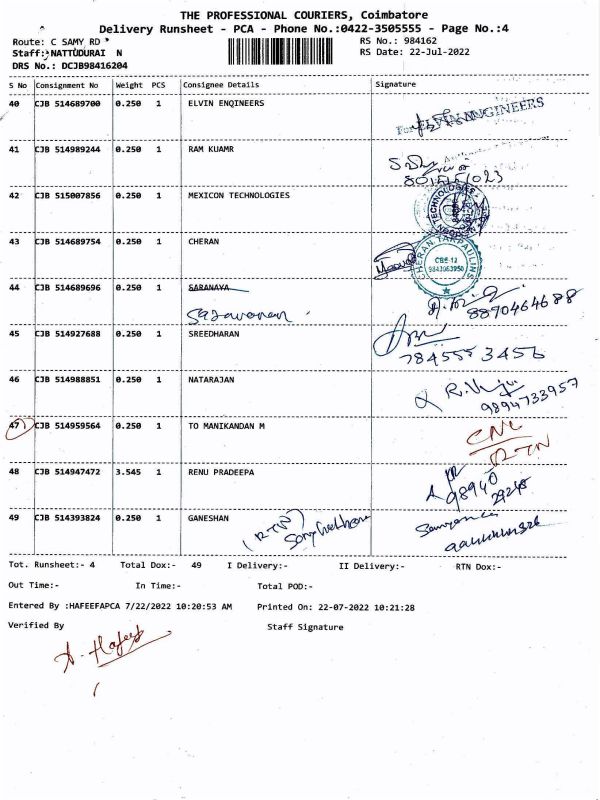 THE PROFESSIONAL COURIERS, Coimbatore
Delivery Runsheet - PCA - Phone No.:0422-3505555 - Page No.:4
Route: C SAMY RD
RS No.: 984162
Staff:NATTUDURAI N
RS Date: 22-Jul-2022
DRS No.: DCJB98416204
S No Consignment No Weight PCS Consignee Details Signature
40 CJB 514689700 0.250 1 ELVIN ENQINEERS
For ELVIN ENGINEERS
41 CJB 514989244 0.250 1 RAM KUAMR
42 CJB 515007856 0.250 1 MEXICON TECHNOLOGIES
TECHNOLOGIES
43 CJB 514689754 0.250 1 CHERAN
CHERAN TARPAULINS
CBE-12
44 CJB 514689696 0.250 1 SARANAYA
Saravanan
8870464688
45 CJB 514927688 0.250 1 SREEDHARAN
784555 3456
46 CJB 514988851 0.250 1 NATARAJAN
9894733957
47 CJB 514959564 0.250 1 TO MANIKANDAN M
CNL
RTN
48 CJB 514947472 3.545 1 RENU PRADEEPA
98940
29248
49 CJB 514393824 0.250 1 GANESHAN
Tot. Runsheet:- 4 Total Dox:- 49 I Delivery:- II Delivery:- RTN Dox:-
Out Time:- In Time:- Total POD:-
Entered By :HAFEEFAPCA 7/22/2022 10:20:53 AM Printed On: 22-07-2022 10:21:28
Verified By Staff Signature